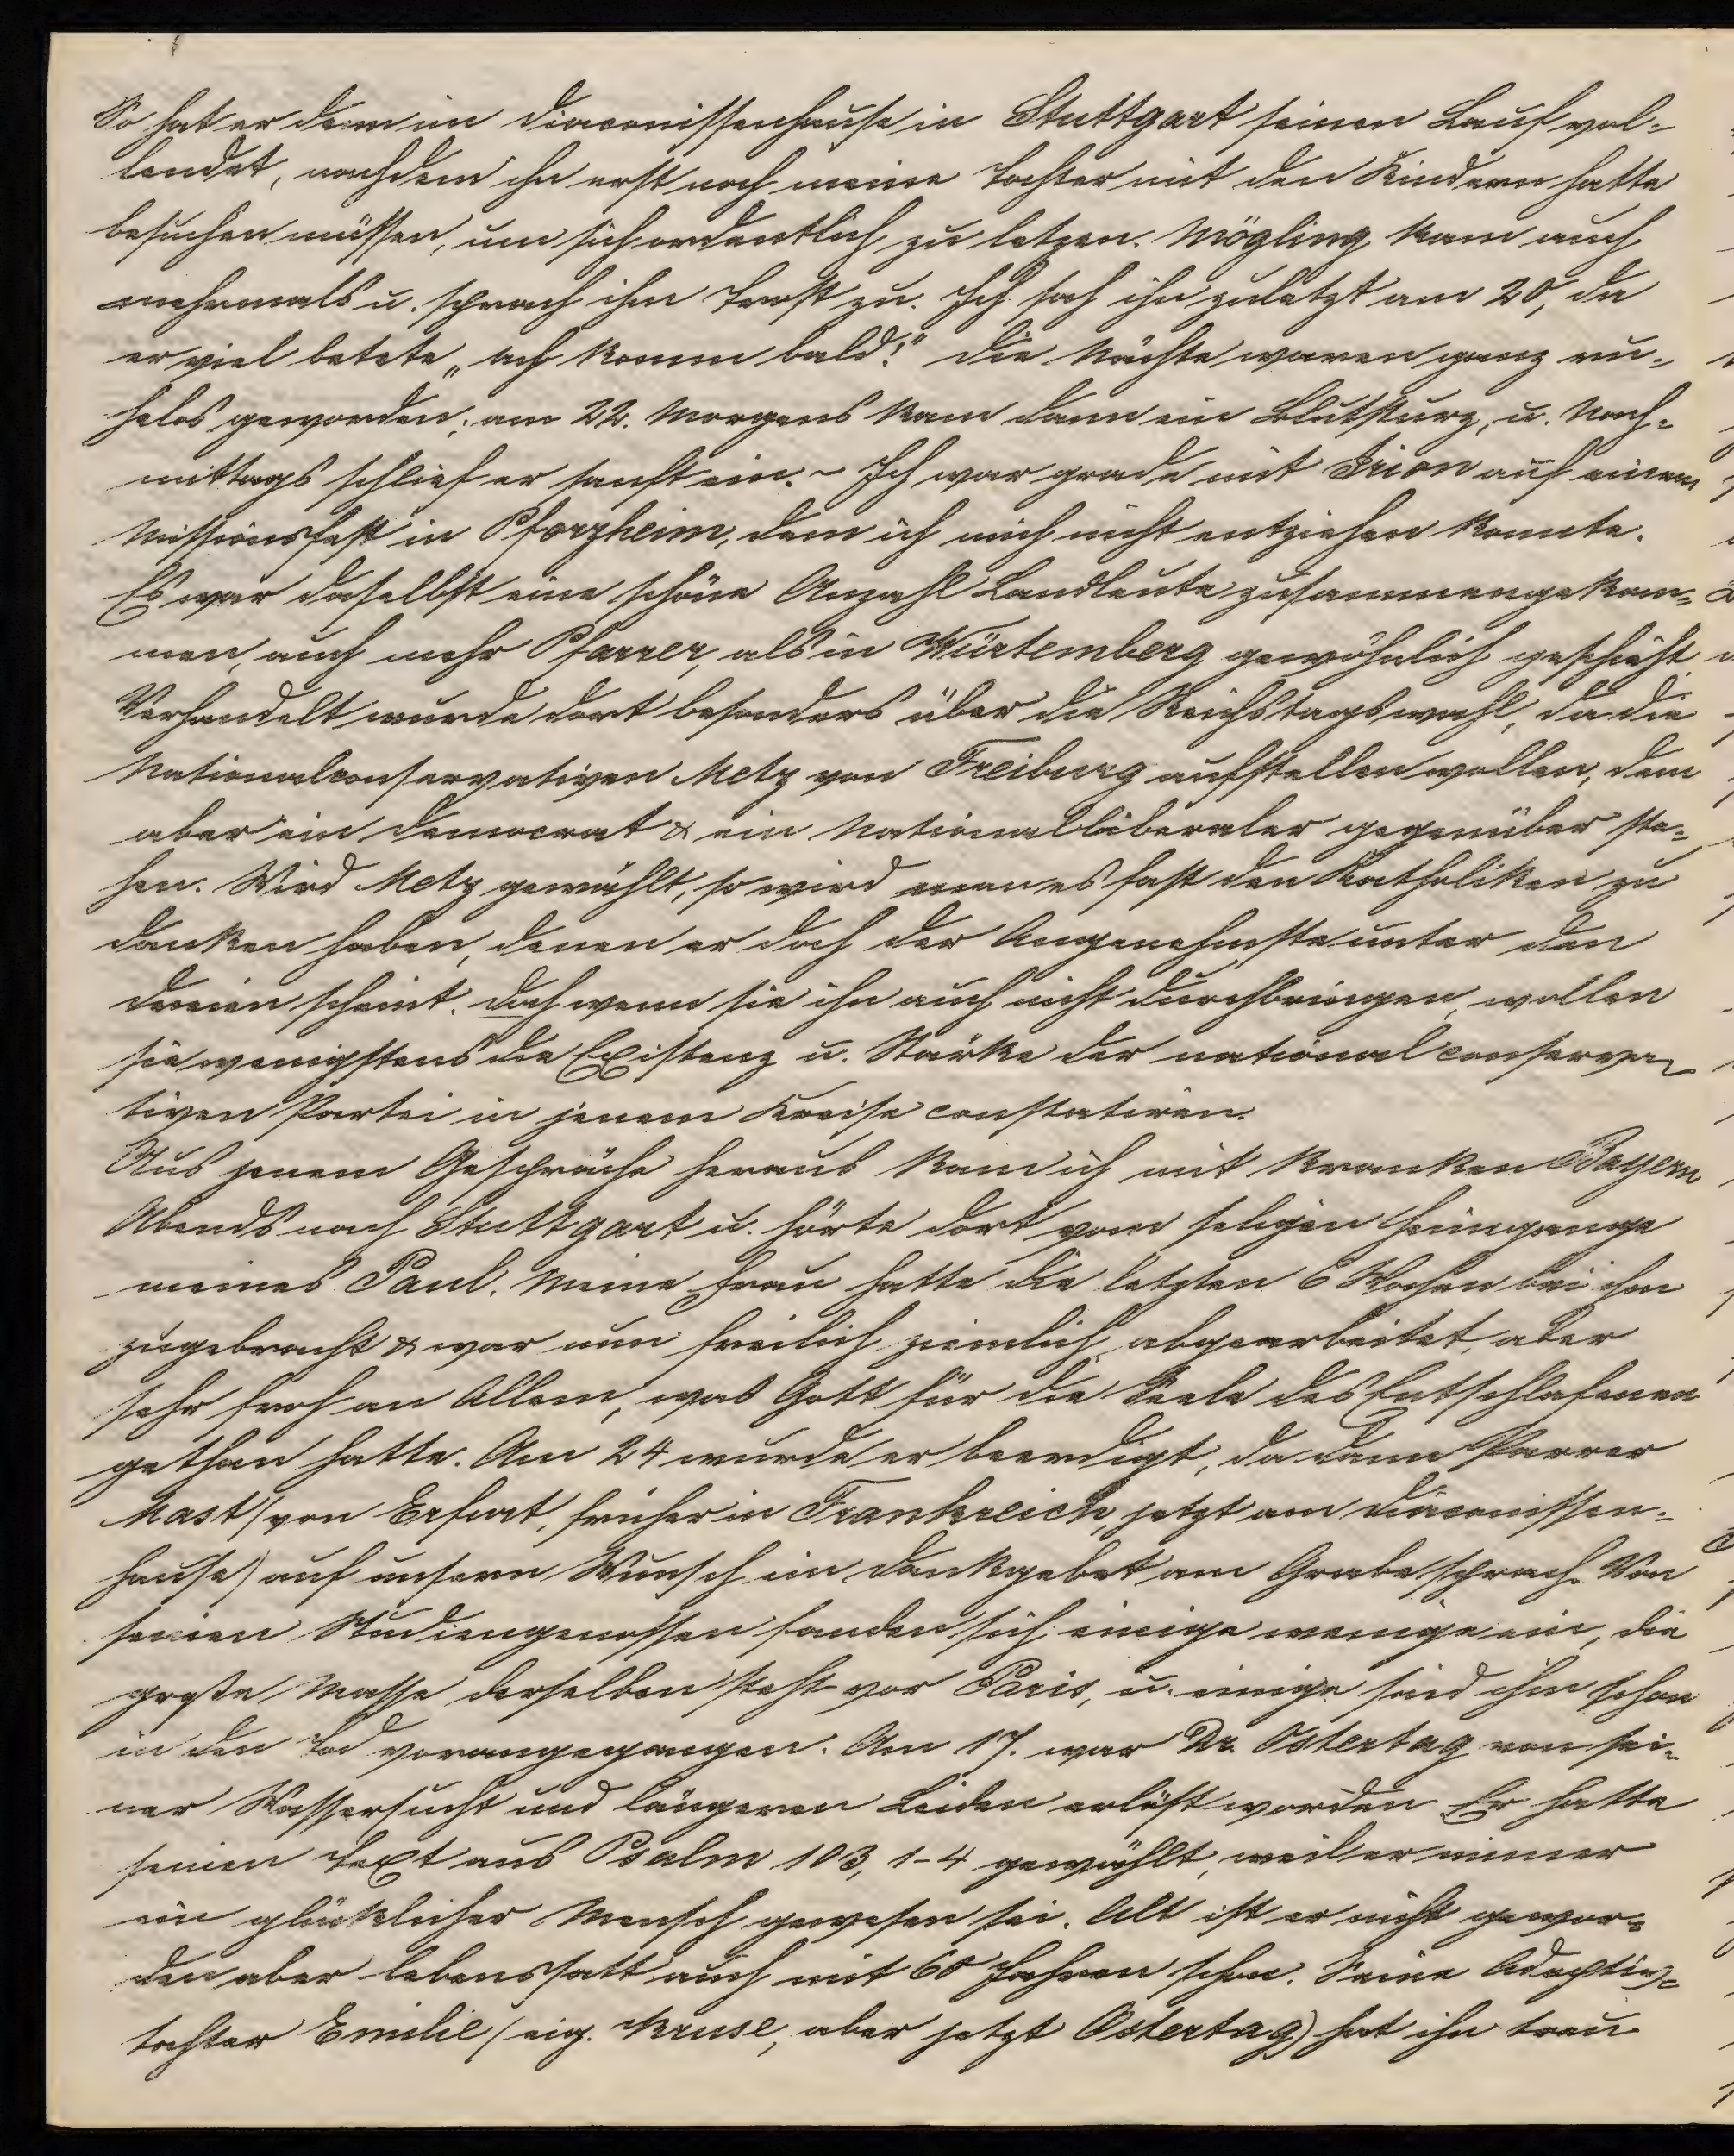 So hat er denn im Diaconissenhause in Stuttgart seinen Lauf vol-
lendet, nachdem ihn erst noch meine Tochter mit den Kindern hatte
besuchen müssen, um sich ordentlich zu letzen. Mögling kam auch
mehrmals u. sprach ihm Trost zu. Ich sah ihn zuletzt am 20, da
er viel betete „ach komm bald!" Die Nächte waren ganz ru-
helos geworden; am 22. Morgens kam dann ein Blutsturz, u. Nach-
mittags schlief er sanft ein. - Ich war grade mit Irion auf einem
Missionsfest in Pforzheim, dem ich mich nicht entziehen konnte.
Es war daselbst eine schöne Anzahl Landleute zusammengekom-
men, auch mehr Pfarrer, als in Würtemberg gewöhnlich geschieht.
Verhandelt wurde dort besonders über die Reichstagswahl, da die
Nationalconservativen Metz von Freiburg aufstellen wollen, dem
aber ein Democrat & ein Nationalliberaler gegenüber ste-
hen. Wird Metz gewählt, so wird man es fast den Katholiken zu
danken haben, denen er doch der Angenehmste unter den
dreien scheint. Doch wenn sie ihn auch nicht durchbringen, wollen
sie wenigstens die Existenz u. Stärke der national conserva-
tiven Partei in jenem Kreise constatiren.
Aus jenem Gespräche heraus kam ich mit kranken Bayern
Abends nach Stuttgart u. hörte dort vom seligen Heimgange
meines Paul. Meine Frau hatte die letzten 6 Wochen bei ihm
zugebracht & war nun freilich ziemlich abgearbeitet, aber
sehr froh an Allem, was Gott für die Seele des Entschlafenen
gethan hatte. Am 24 wurde er beerdigt, da dann Parrer
Mast (von Erfurt, früher in Frankreich, jetzt am Diaconissen-
hause) auf unsern Wunsch ein Dankgebet am Grabe sprach. Von
seinen Studiengenossen fanden sich einige wenige ein, die
große Masse derselben steht vor Paris, u. einige sind ihm schon
in den Tod vorangegangen. Am 17. war Dr. Ostertag von sei-
ner Wassersucht und längeren Leiden erlöst worden. Er hatte
seinen Text aus Psalm 103, 1-4 gewählt, weil er immer
ein glücklicher Mensch gewesen sei. Alt ist er nicht gewor-
den aber lebenssatt auch mit 60 Jahren schon. Seine Adoptiv-
tochter Emilie (eig. Kruse, aber jetzt Ostertag) hat ihn treu